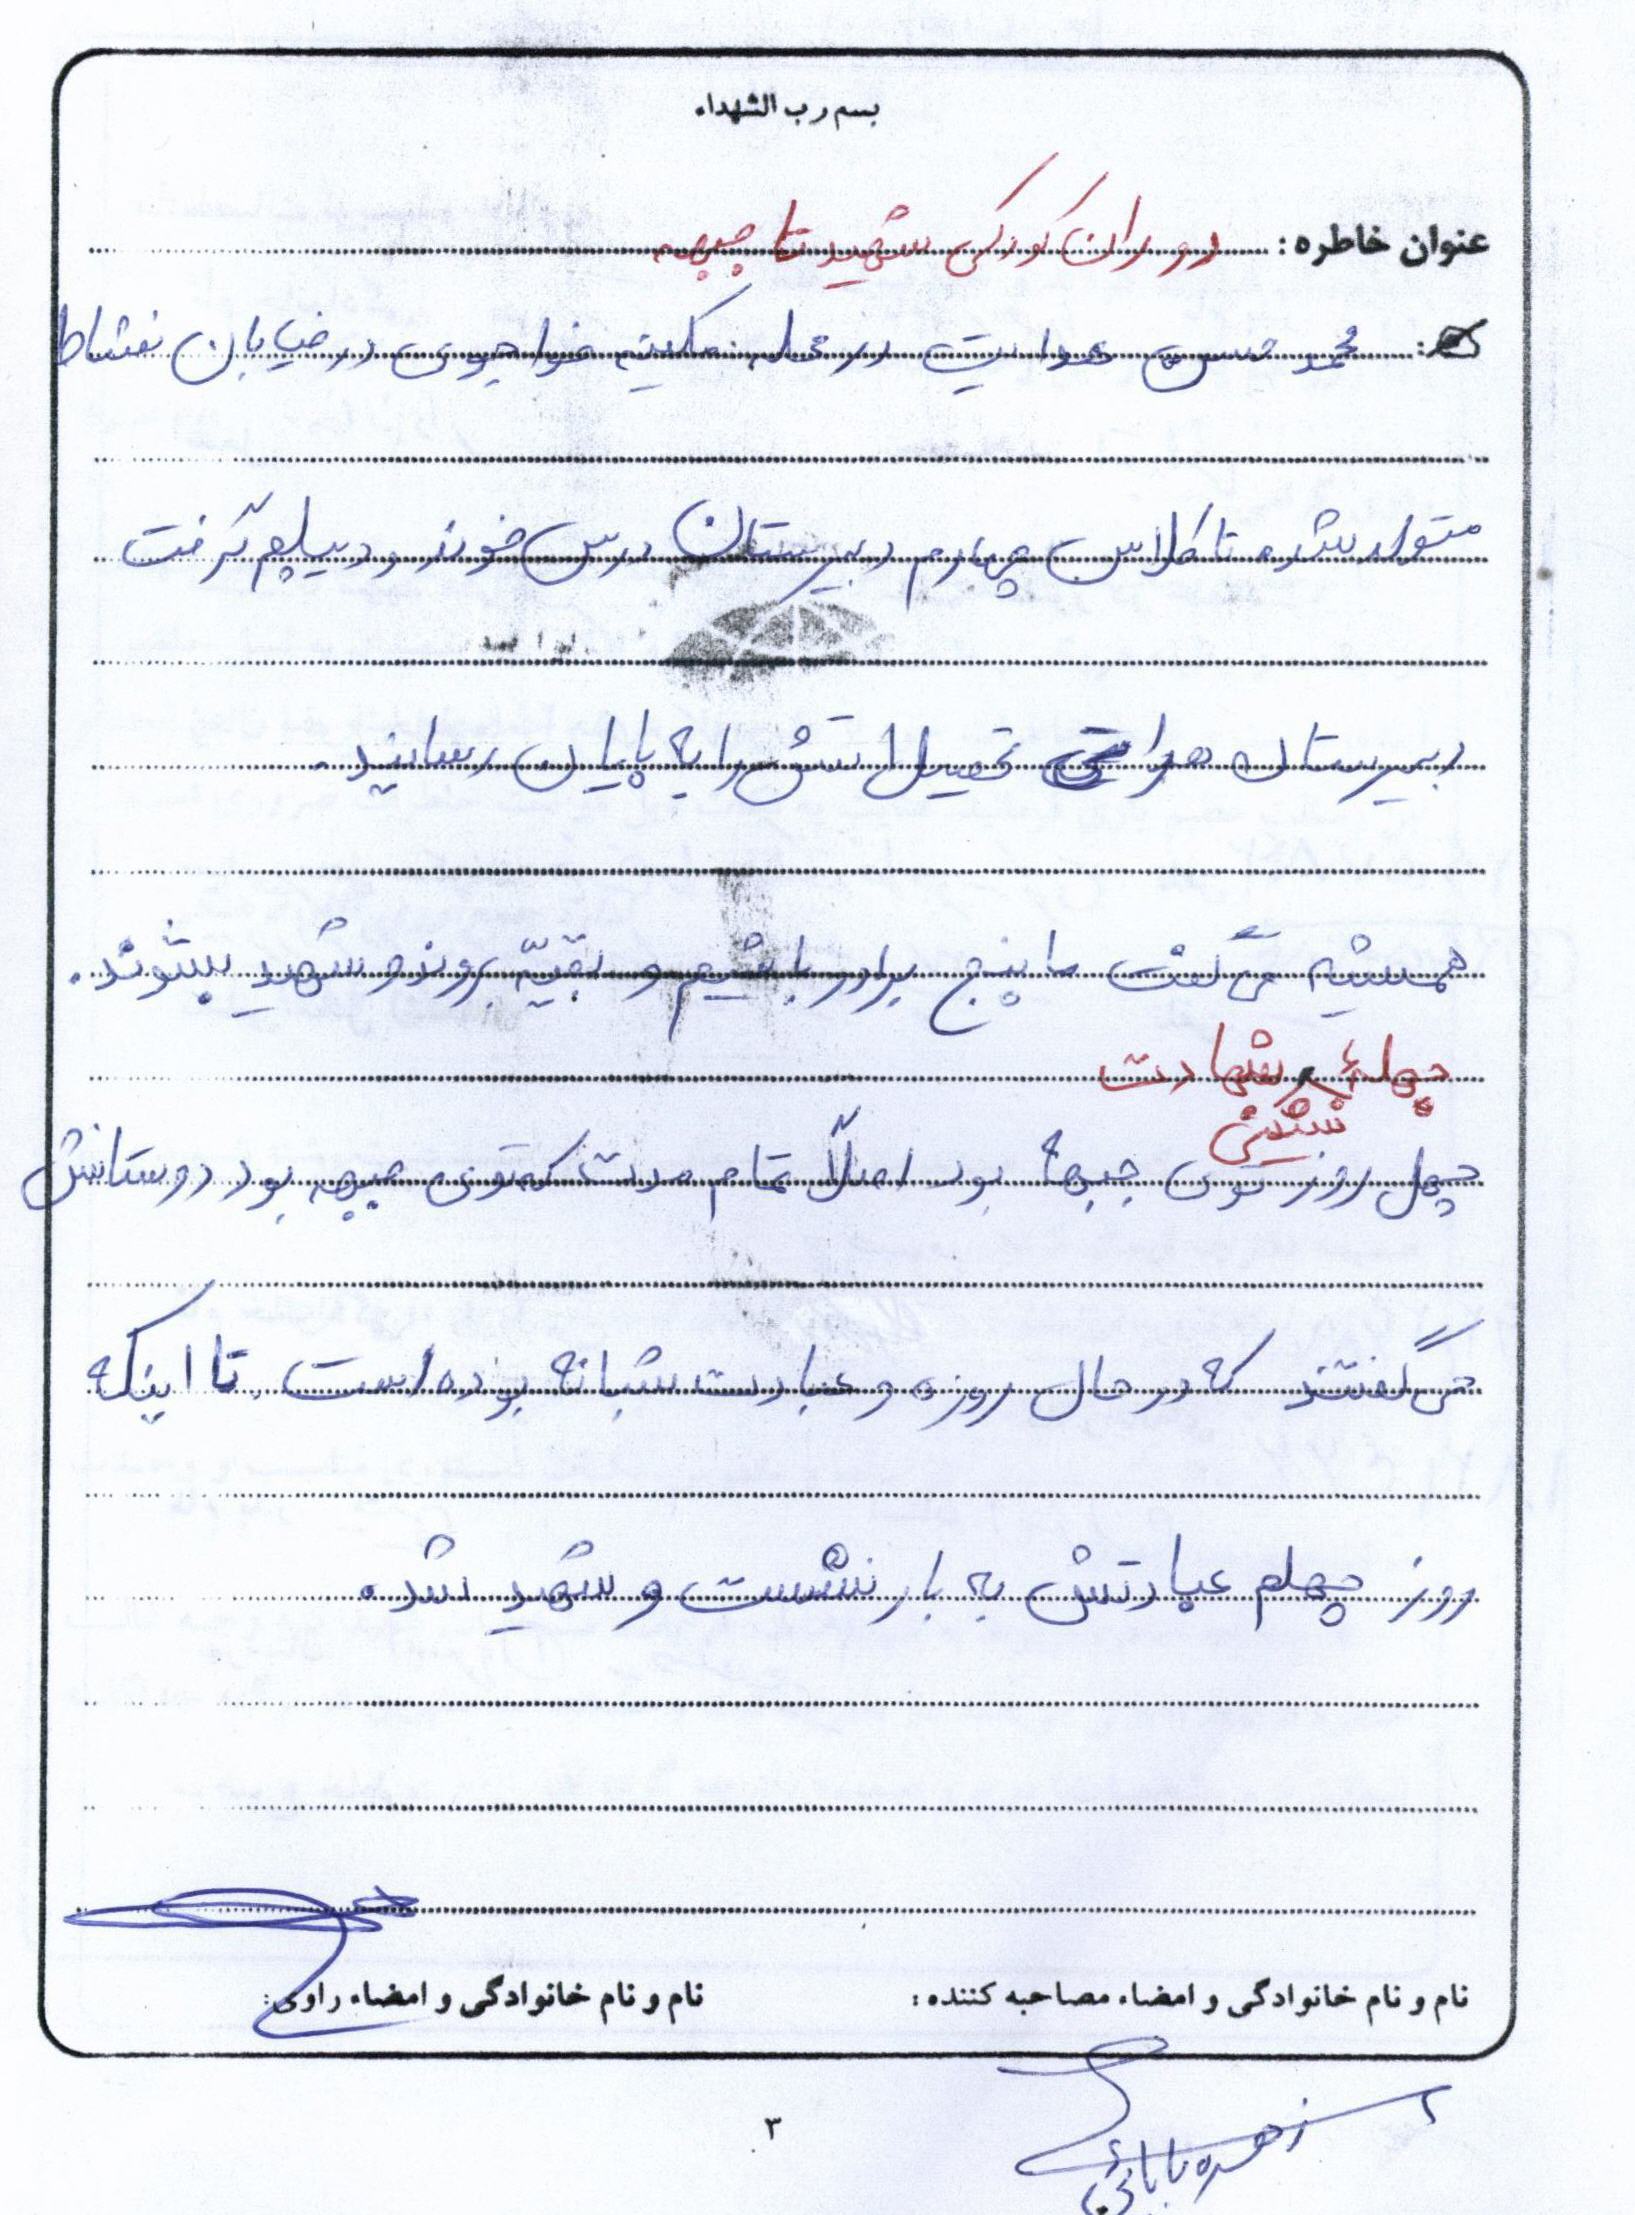 بسم رب الشهداء
عنوان خاطره: دوران کودکی شهید تا جبهه
محمد حسین هدایت در محله تکیه خواجوی در خیابان نشاط
متولد شده تا کلاس چهارم دبیرستان درس خوند و دیپلم گرفت
دبیرستان هراتی تحصیلاتش را به پایان رسانید.
همیشه می گفت ما پنج برادر باشیم و بقیّه بروند و شهید بشوند.
چهلهٔ شهادت
نشینی
چهل روز توی جبهه بود اصلاً تمام مدت که توی جبهه بود دوستانش
می گفتند که در حال روزه و عبادت شبانه بوده است. تا اینکه
روز چهلم عبادتش به بار نشست و شهید شد.
نام و نام خانوادگی و امضاء مصاحبه کننده: نام و نام خانوادگی و امضاء راوی:
زهره بابائی
۳